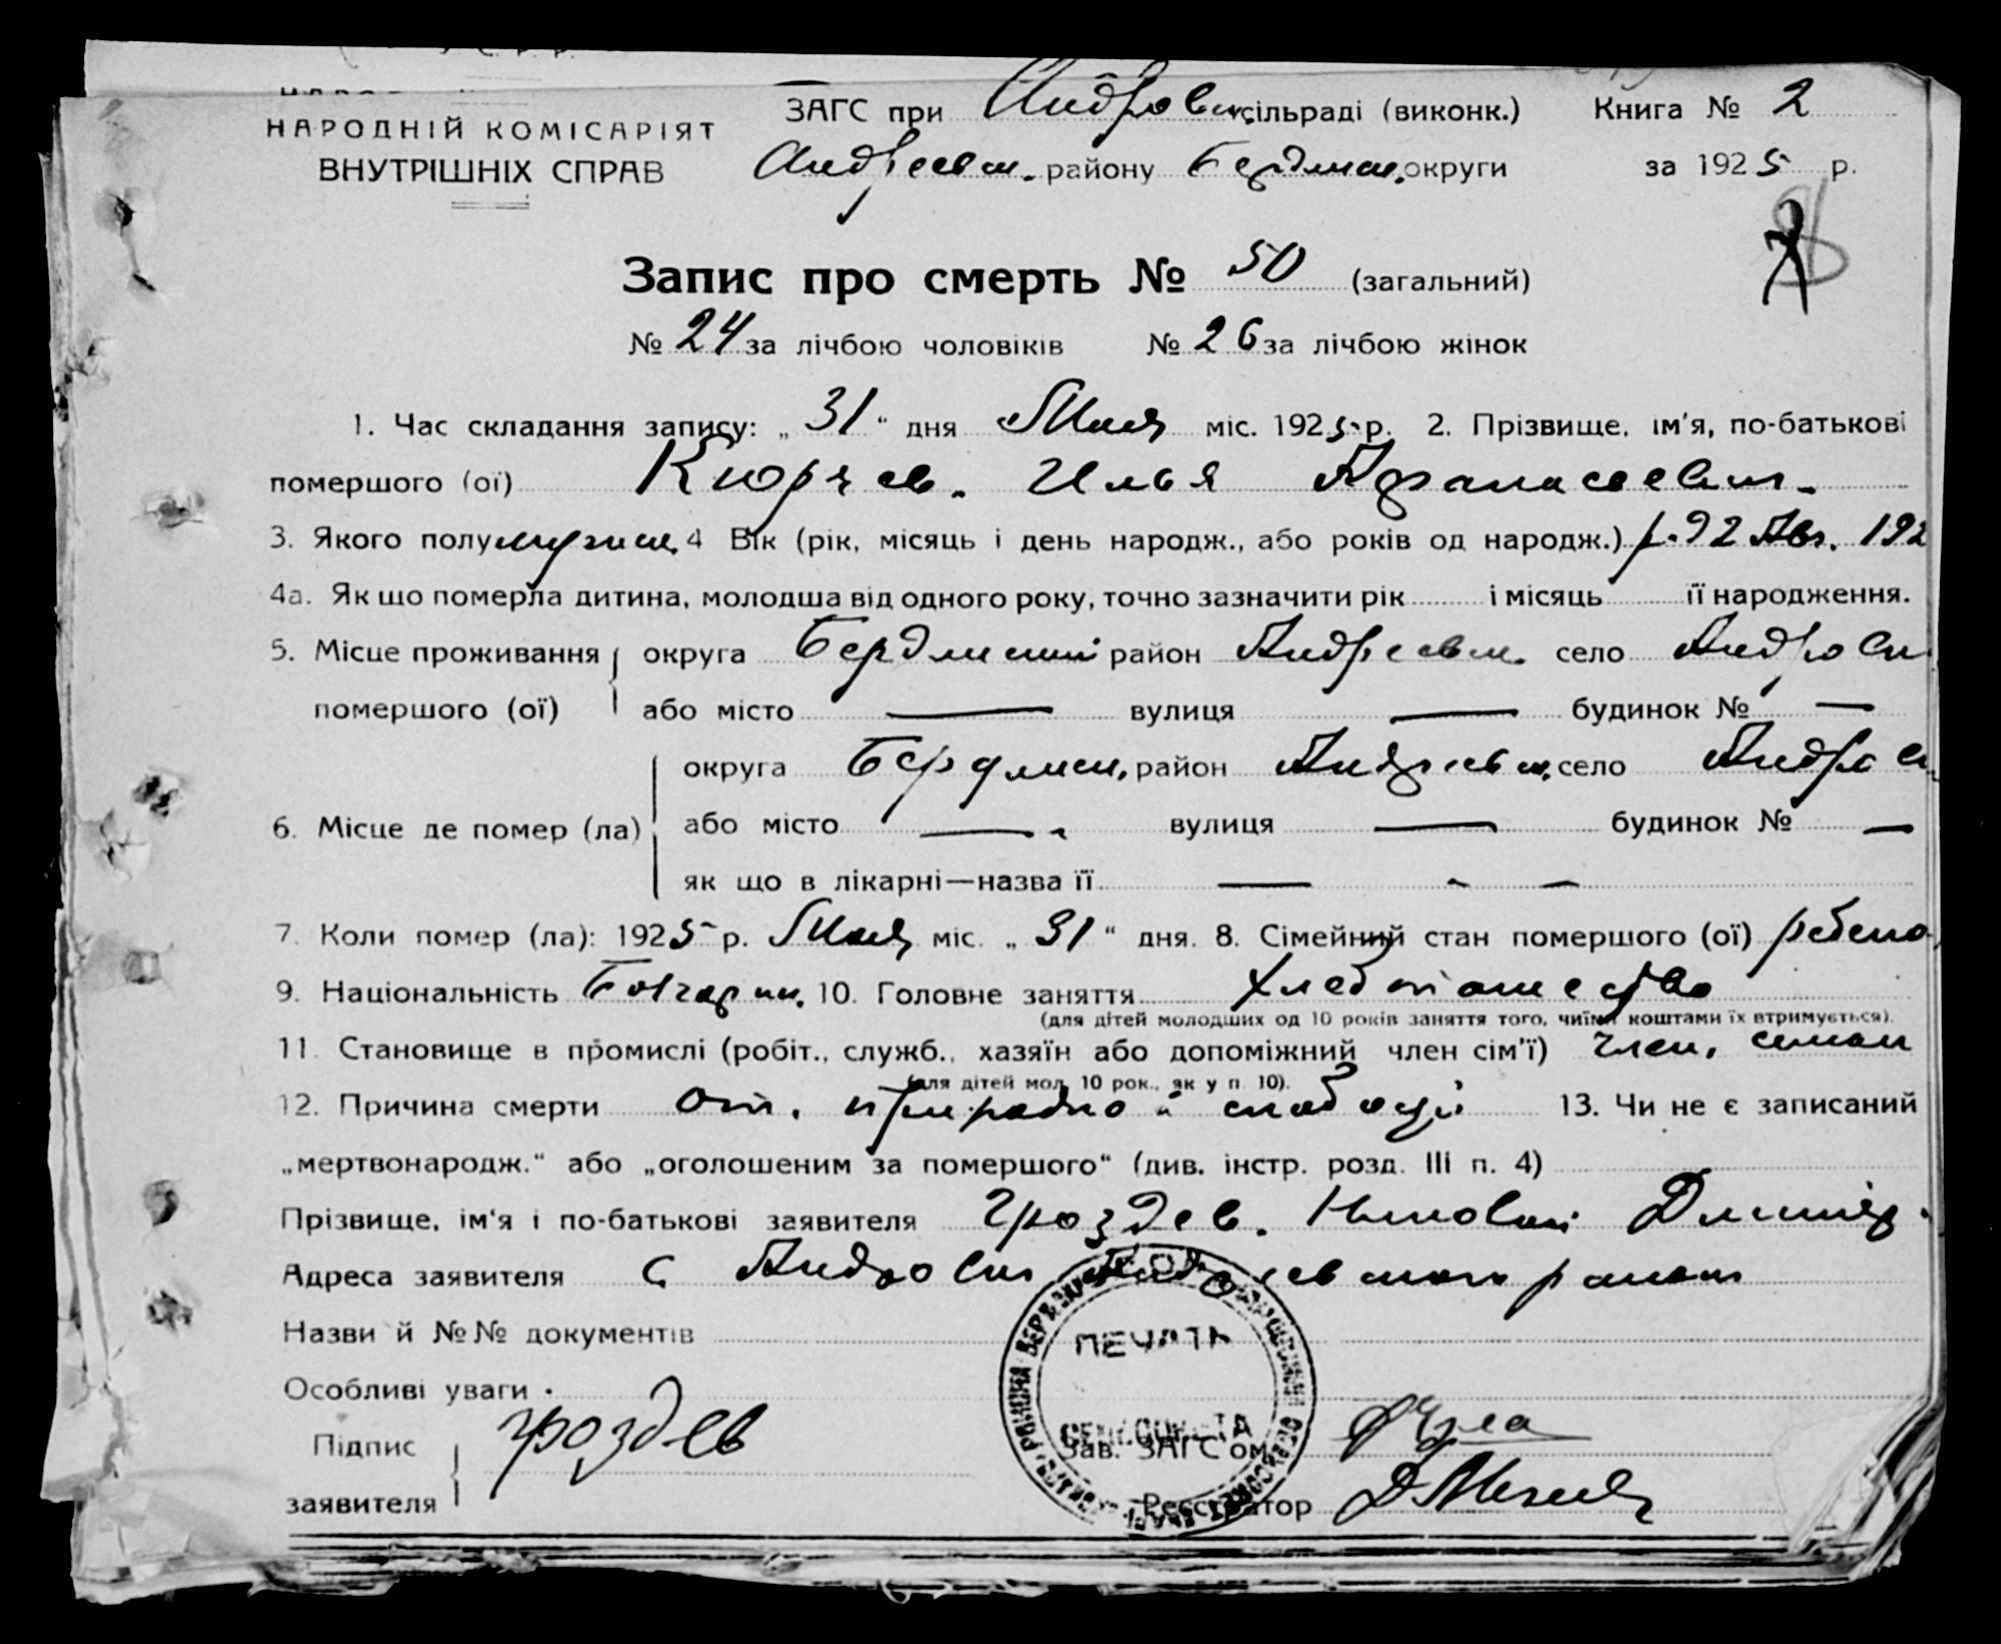 НАРОДНІЙ КОМІСАРІЯТ
ВНУТРІШНІХ СПРАВ
ЗАГС при Андровск. сільраді (виконк.) Книга № 2
Андреевск. району Бердянск. округи за 1925 р.
Запис про смерть № 50 (загальний)
№ 24 за лічбою чоловіків № 26 за лічбою жінок
1. Час складання запису: „ 31 “ дня Мая міс. 1925 р. 2. Прізвище, ім'я, по-батькові
помершого (ої) Кюрчев. Илья Афанасеевич.
3. Якого полу мужск. 4 Вік (рік, місяць і день народж., або років од народж.) 192
4а. Як що померла дитина, молодша від одного року, точно зазначити рік і місяць її народження.
5. Місце проживання округа Бердянский район Андреевск. село Андровк
помершого (ої) або місто — вулиця — будинок № —
округа Бердянск. район Андреевск. село Андровк
6. Місце де помер (ла) або місто — вулиця — будинок № —
як що в лікарні—назва її — - —
7. Коли помер (ла): 1925 р. Мая міс. „ 31 “ дня. 8. Сімейний стан помершого (ої) ребено
9. Національність Болгарин. 10. Головне заняття Хлебопашество
(для дітей молодших од 10 років заняття того, чиїми коштами їх втримується).
11. Становище в промислі (робіт., служб., хазяїн або допоміжний член сім'ї) член.
(для дітей мол. 10 рок., як у п. 10).
12. Причина смерти от. природной слабости 13. Чи не є записаний
„мертвонародж.“ або „оголошеним за помершого“ (див. інстр. розд. III п. 4)
Прізвище, ім'я і по-батькові заявителя Гроздев. Дмитр.
Адреса заявителя с Андровк Андреевского района
Назви й №№ документів
Особливі уваги
Підпис
заявителя Гроздев
ПЕЧАТЬ
СЕЛЬСОВЕТА
Зав. ЗАГС'ом
Реєстратор